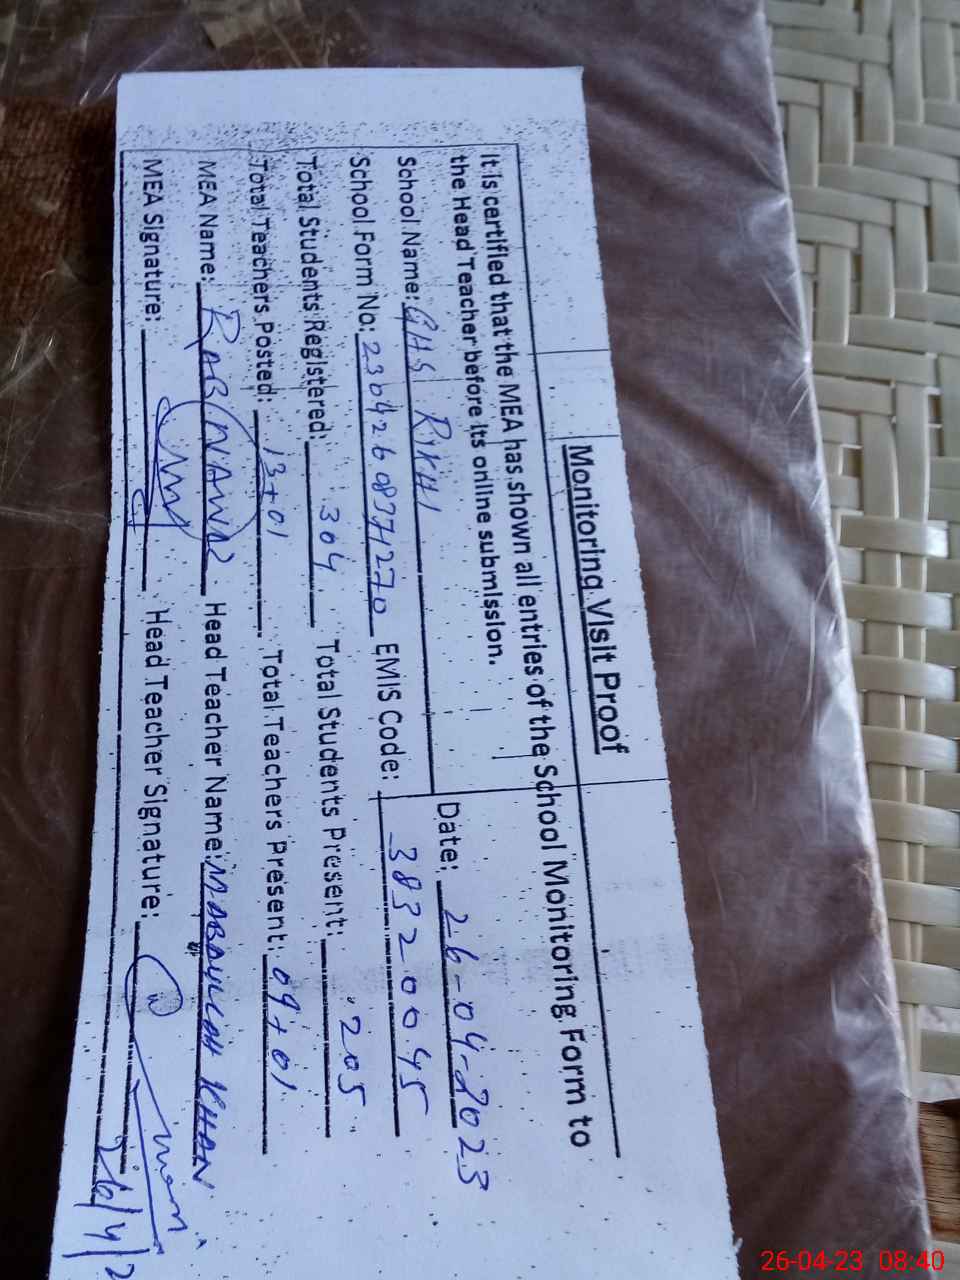 Monitoring Visit Proof
It is certified that the MEA has shown all entries of the School Monitoring Form to
the Head Teacher before its online submission.
Date: 26-04-2023
School Name: GHS RIKHI
School Form No: 23042608371270 EMIS Code: 38320045
Total Students Registered: 304 Total Students Present: 205
Total Teachers Posted: 13+01 Total Teachers Present: 09+01
MEA Name: RAB NAWAZ Head Teacher Name: M ABDULLAH KHAN
MEA Signature: Head Teacher Signature:
26/4/2
26-04-23 08:40